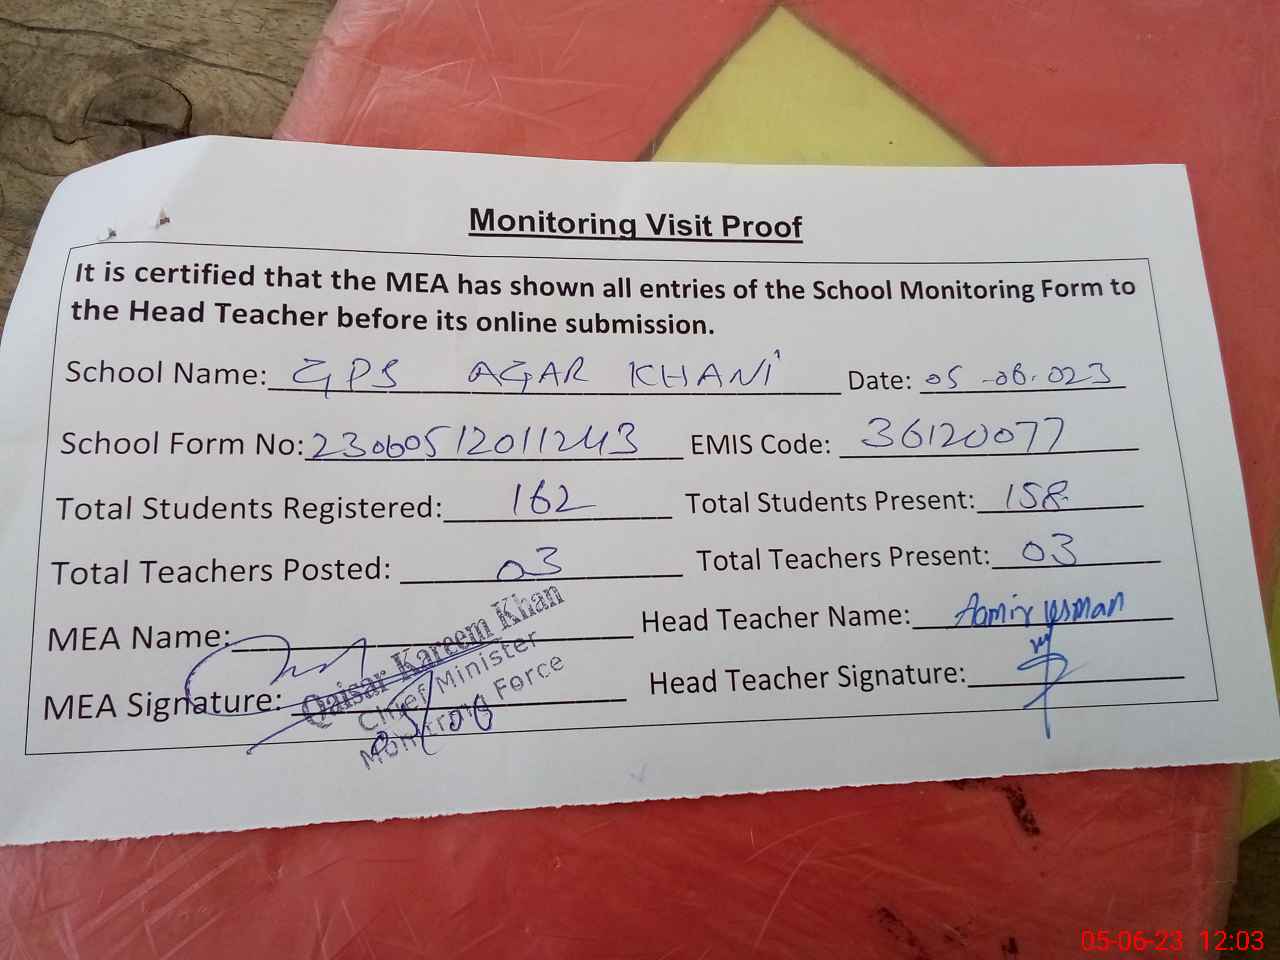 Monitoring Visit Proof
It is certified that the MEA has shown all entries of the School Monitoring Form to
the Head Teacher before its online submission.
School Name: GPS AGAR KHANI Date: 05-06-023
School Form No: 23060512011243 EMIS Code: 36120077
Total Students Registered: 162 Total Students Present: 158
Total Teachers Posted: 03 Total Teachers Present: 03
MEA Name: Head Teacher Name: Aamir Usman
MEA Signature: Head Teacher Signature:
Qaisar Kareem Khan
Chief Minister
Monitring Force
05-06-23 12:03